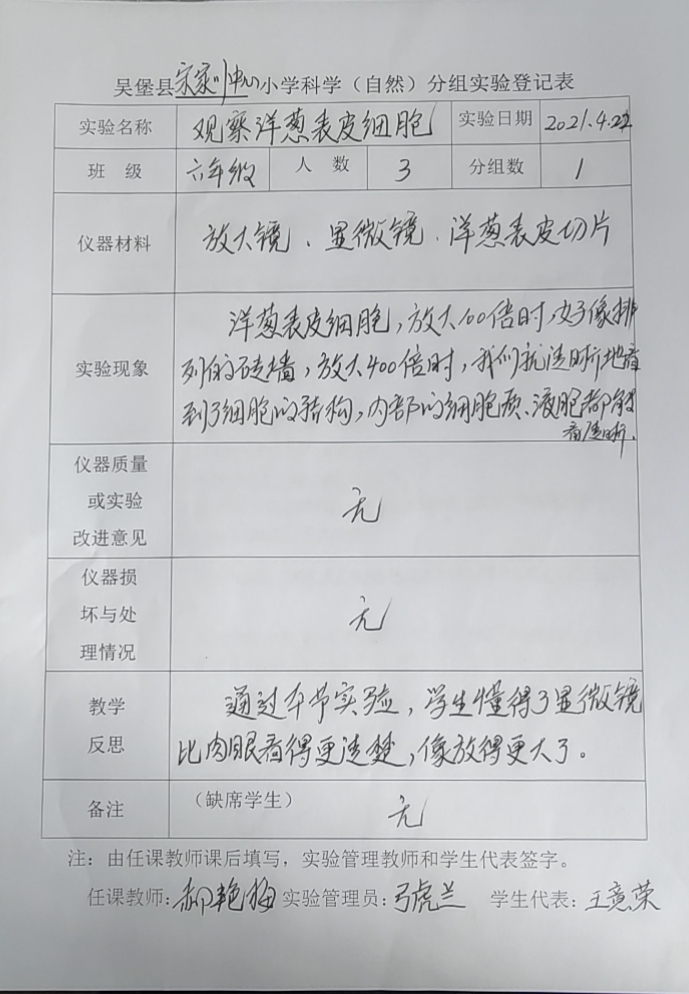 吴堡县宋家川中心小学科学（自然）分组实验登记表
实验名称 观察洋葱表皮细胞 实验日期 2021.4.22
班 级 六年级 人 数 3 分组数 1
仪器材料 放大镜、显微镜、洋葱表皮切片
洋葱表皮细胞，放大100倍时，好像排
实验现象 列的砖墙，放大400倍时，我们就清晰地看
到了细胞的结构，内部的细胞质、液胞都能
看清晰。
仪器质量
或实验
改进意见
无
仪器损
坏与处
理情况
无
教学
反思
通过本节实验，学生懂得了显微镜
比肉眼看得更清楚，像放得更大了。
备注 （缺席学生） 无
注：由任课教师课后填写，实验管理教师和学生代表签字。
任课教师：郝艳梅 实验管理员：弓虎兰 学生代表：王意荣